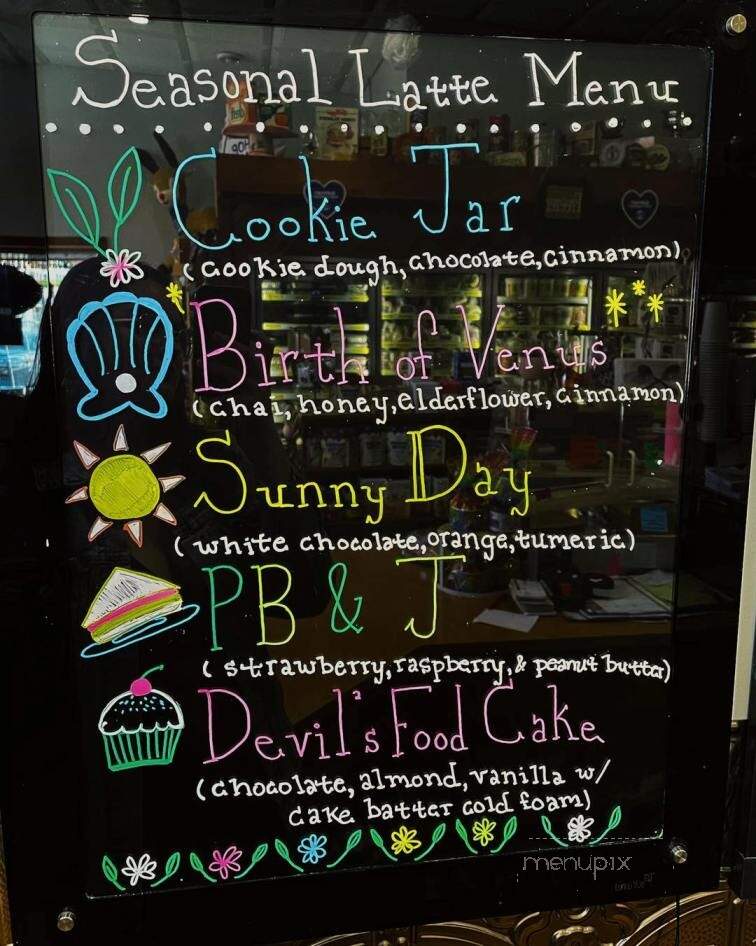 Seasonal Latte Menu
Cookie Jar
(cookie dough, chocolate, cinnamon)
Birth of Venus
(chai, honey, elderflower, cinnamon)
Sunny Day
(white chocolate, orange, tumeric)
PB & J
(strawberry, raspberry, & peanut butter)
Devil's Food Cake
(chocolate, almond, vanilla w/
cake batter cold foam)
menupix